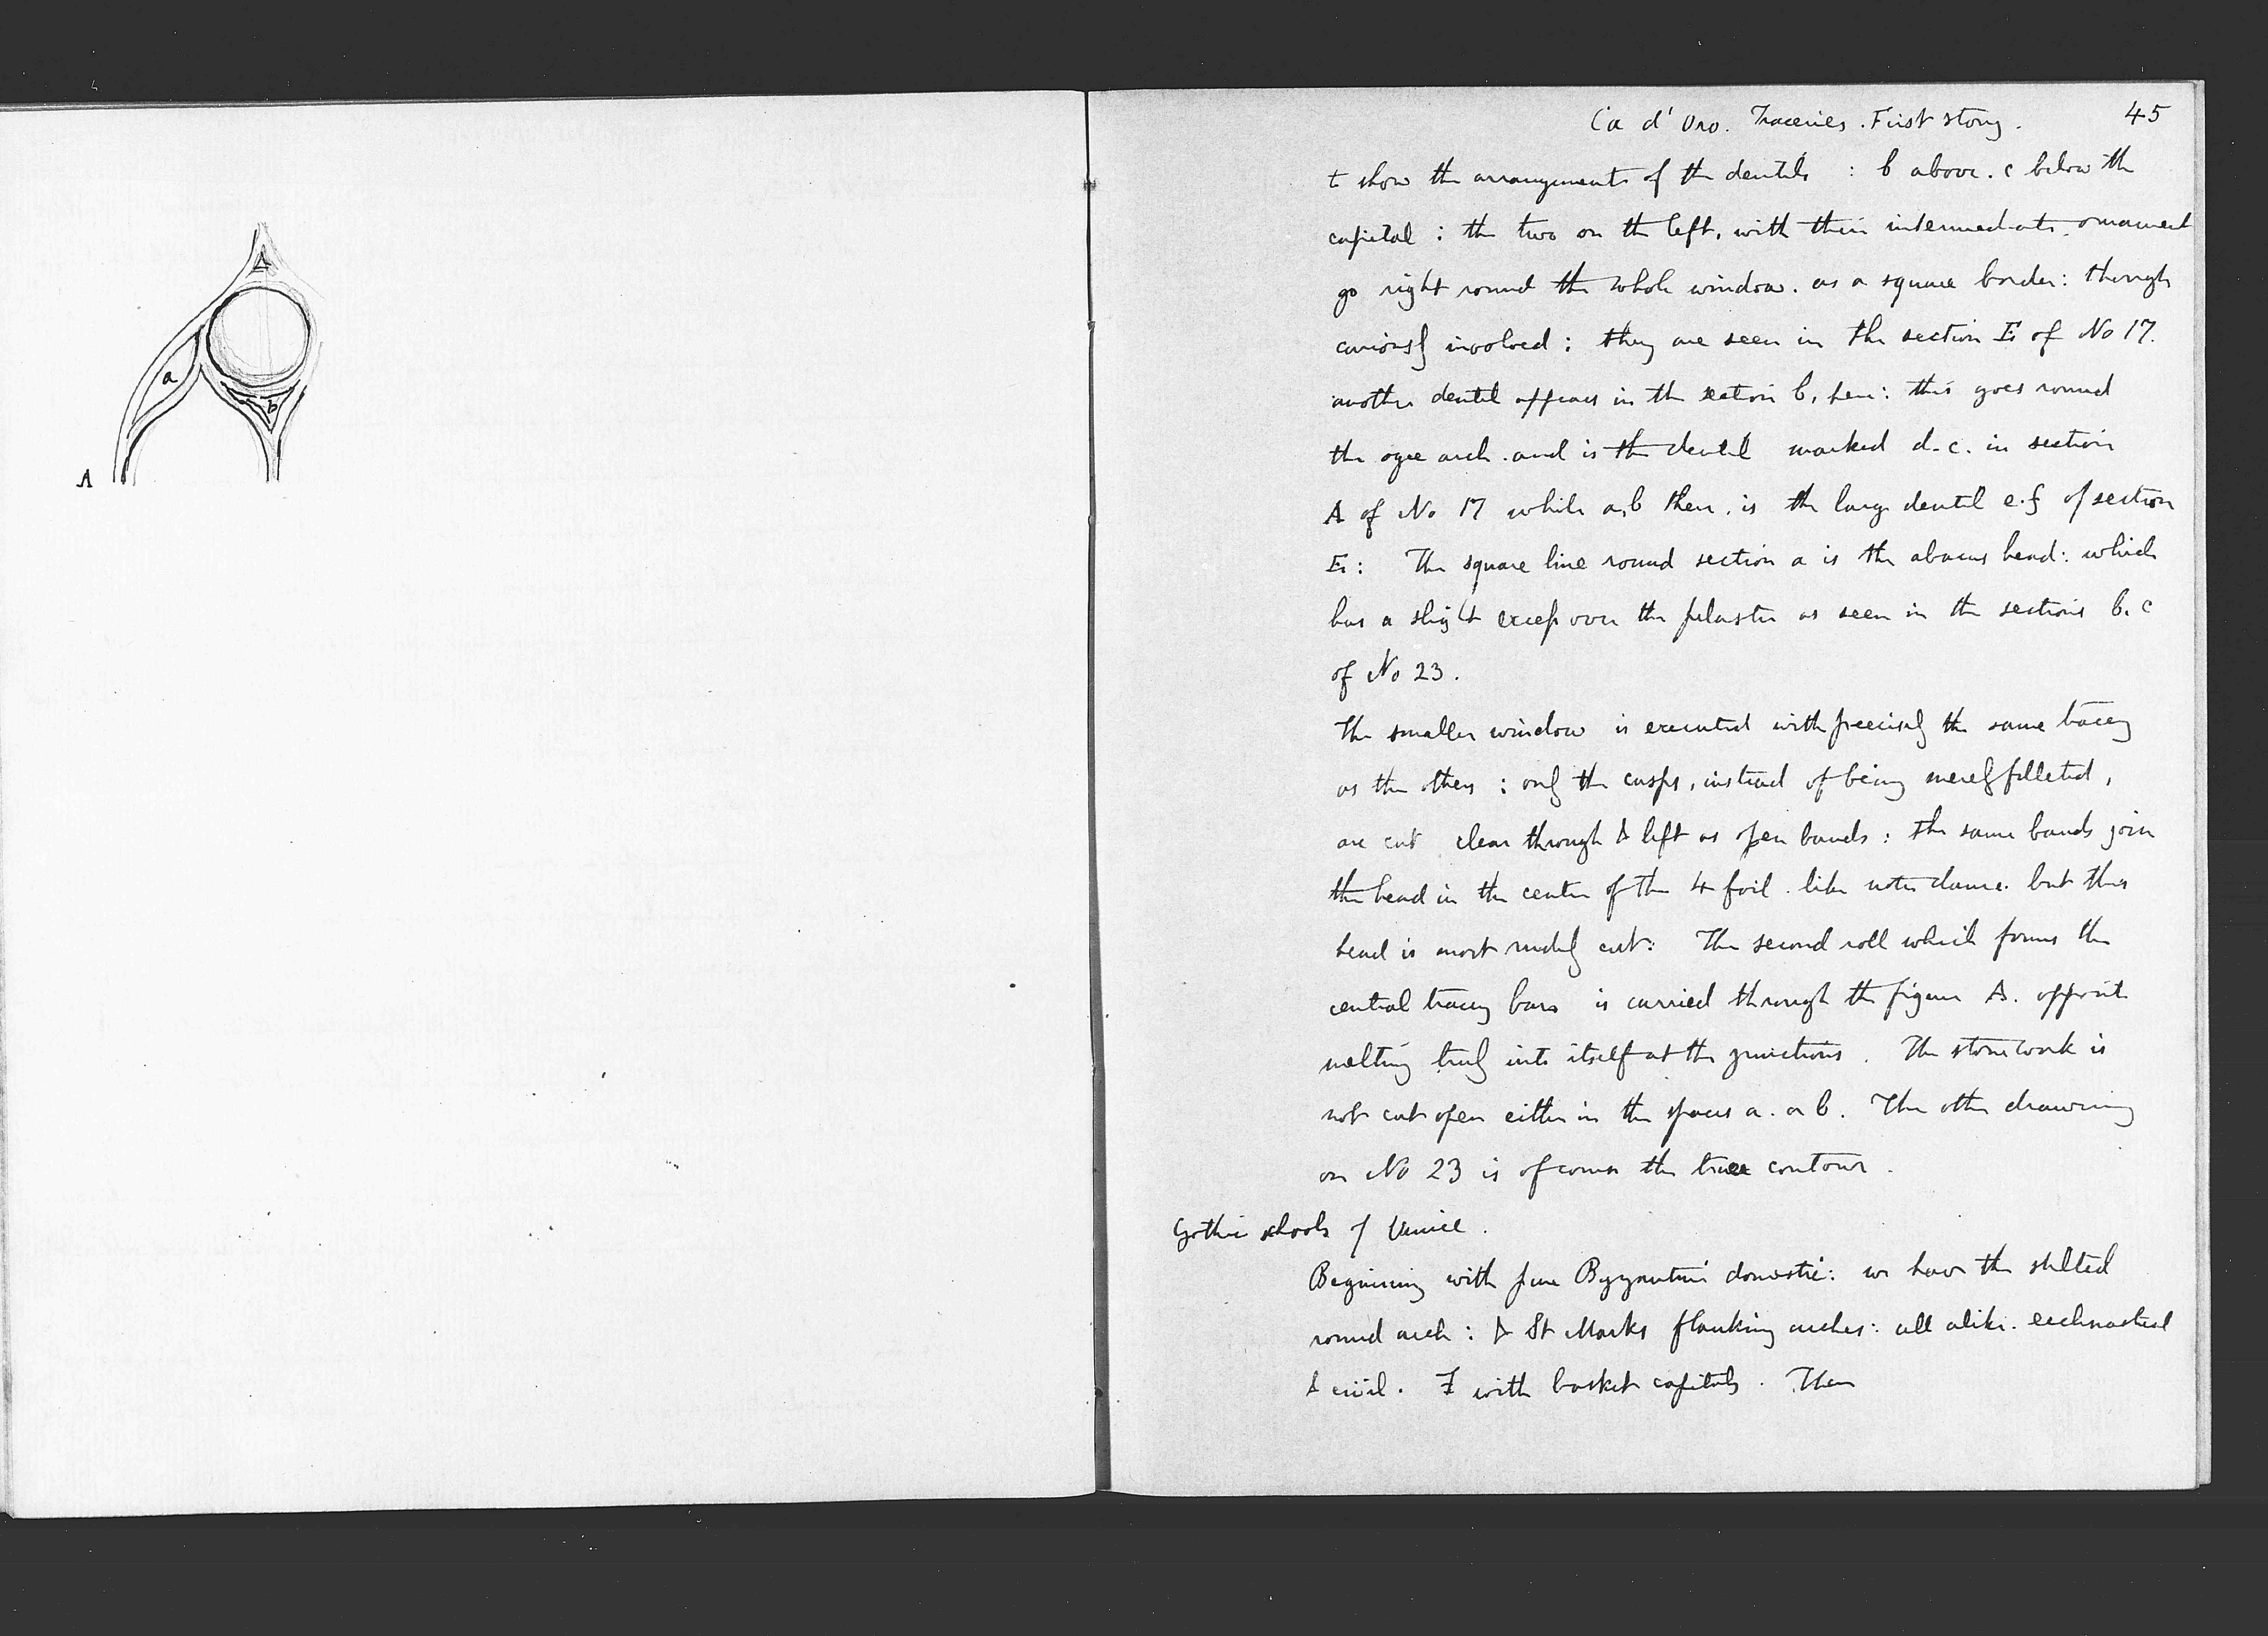 a
b
A
Ca d' Oro. Traceries. First story.
45
to show the arrangements of the dentils : b above. c below the
capital : the two on the left, with their intermediate ornament
go right round the whole window. as a square border: though
curiously involved : they are seen in the section E of No 17.
another dentil appears in the section b, here: this goes round
the ogee arch. and is the dentil marked d. c. in section
A of No 17 while a,b there. is the large dentil e.f of section
E: The square line round section a is the abacus head: which
has a slight over the pilaster as seen in the sections b. c
of No 23.
The smaller window is executed with precisely the same tracery
as the others : only the cusps, instead of being merely filleted,
are cut clear through & left as open bands : the same bands join
the head in the center of the 4 foil. like notre dame. but this
head is most rudely cut: The second roll which forms the
central tracery bars is carried through the figure A. opposite
melting truly into itself at the junctions. The stonework is
not cut open either in the spaces a. or b. The other drawing
on No 23 is of course the true contour.
Gothic schools of Venice.
Beginning with pure Byzantine domestic: we have the stilted
round arch : & St Marks flanking arches: all alike. ecclesiastical
& civil. with basket capitals. Then